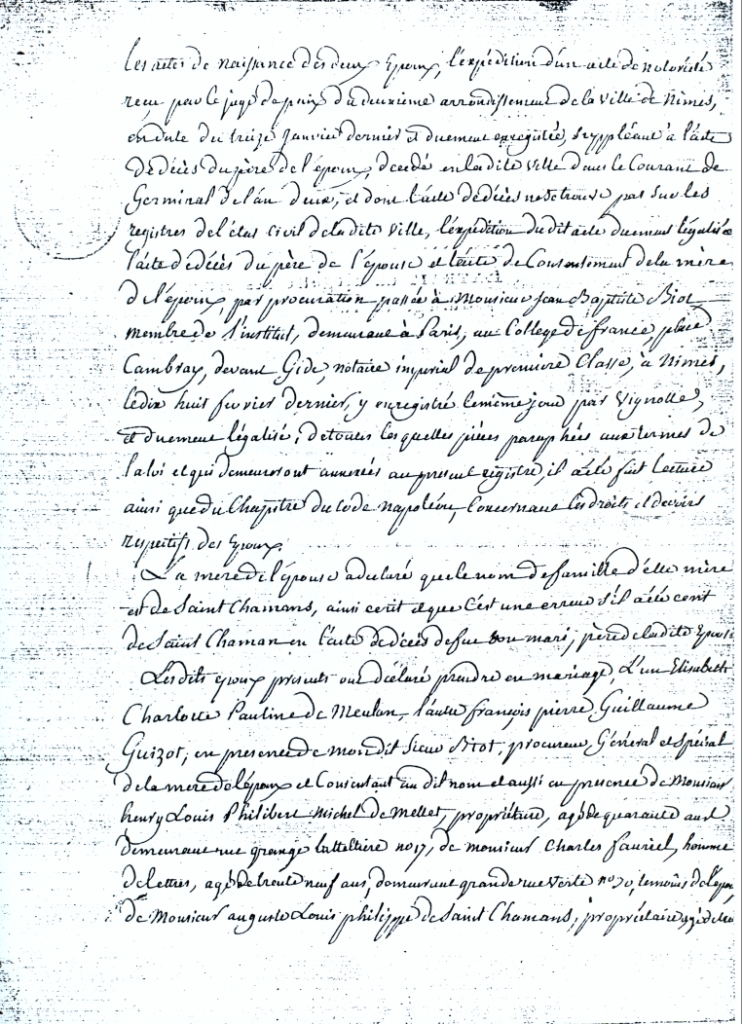 Les actes de naissance des deux Epoux, l'expédition d'un acte de notoriété
reçu par le juge de paix du deuxième arrondissement de la ville de Nimes,
en date du treize janvier dernier et duement enregistré, suppléant à l'acte
de décès du père de l'époux, décédé en ladite ville dans le Courant de
Germinal de l'an deux, et dont l'acte de décès ne se trouve pas sur les
registres de l'état Civil de ladite Ville, l'expédition du dit acte duement légalisée
l'acte de décès du père de l'épouse et l'acte de Consentement de la mère
de l'époux, par procuration passée à Monsieur Jean Baptiste Biot
membre de l'institut, demeurant à Paris, au College de france, place
Cambray, devant Gide, notaire impérial de première Classe, à Nimes,
le dix huit fevrier dernier, y enregistré le même jour par Vignolle,
et duement légalisé; de toutes lesquelles pièces paraphées aux termes de
la loi et qui demeureront annexées au present registre, il a été fait Lecture
ainsi que du Chapitre du Code Napoléon, Concernant les droits et devoirs
respectifs des Epoux.
La mere de l'épouse a declaré que le nom de famille d'elle mère
est de Saint Chamans, ainsi ecrit et que c'est une erreur s'il a été ecrit
de Saint Chaman en l'acte de décès de feu son mari, père de ladite Epouse
Lesdits epoux presents ont déclaré prendre en mariage, L'un Elisabeth
Charlotte Pauline de Meulan, l'autre françois pierre Guillaume
Guizot; en presence de mondit Sieur Biot, procureur Général et spécial
de la mere de l'époux et Consentant au dit nom et aussi en presence de Monsieur
henry Louis Philibert Michel de Mellet, propriétaire, agé de quarante ans
demeurant rue grange bateliere no 17, de monsieur Charles fauriel, homme
de lettres, agé de trente neuf ans, demeurant grande rue Verte no 30, temoins de l'époux
de Monsieur auguste Louis philippe de Saint Chamans, propriétaire agé de